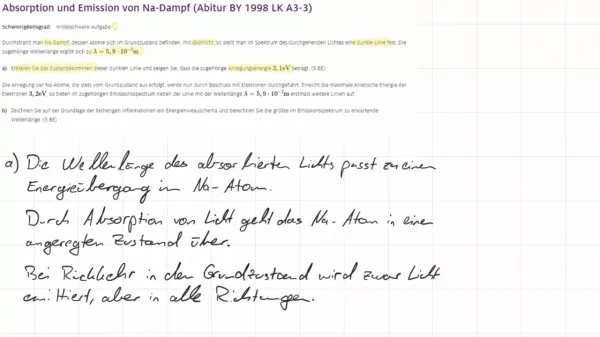 Absorption und Emission von Na-Dampf (Abitur BY 1998 LK A3-3)
Schwierigkeitsgrad: mittelschwere Aufgabe
Durchstrahlt man Na-Dampf, dessen Atome sich im Grundzustand befinden, mit Glühlicht, so stellt man im Spektrum des durchgehenden Lichtes eine dunkle Linie fest. Die
zugehörige Wellenlänge ergibt sich zu λ = 5,9 · 10⁻⁷m.
a) Erklären Sie das Zustandekommen dieser dunklen Linie und zeigen Sie, dass die zugehörige Anregungsenergie 2,1eV beträgt. (5 BE)
Die Anregung der Na-Atome, die stets vom Grundzustand aus erfolgt, werde nun durch Beschuss mit Elektronen durchgeführt. Erreicht die maximale kinetische Energie der
Elektronen 3,2eV, so treten im zugehörigen Emissionsspektrum neben der Linie mit der Wellenlänge λ = 5,9 · 10⁻⁷m erstmals weitere Linien auf.
b) Zeichnen Sie auf der Grundlage der bisherigen Informationen ein Energieniveauschema und berechnen Sie die größte im Emissionsspektrum zu erwartende
Wellenlänge. (5 BE)
a) Die Wellenlänge des absorbierten Lichts passt zu einem
Energieübergang im Na-Atom.
Durch Absorption von Licht geht das Na-Atom in einen
angeregten Zustand über.
Bei Rückkehr in den Grundzustand wird zwar Licht
emittiert, aber in alle Richtungen.